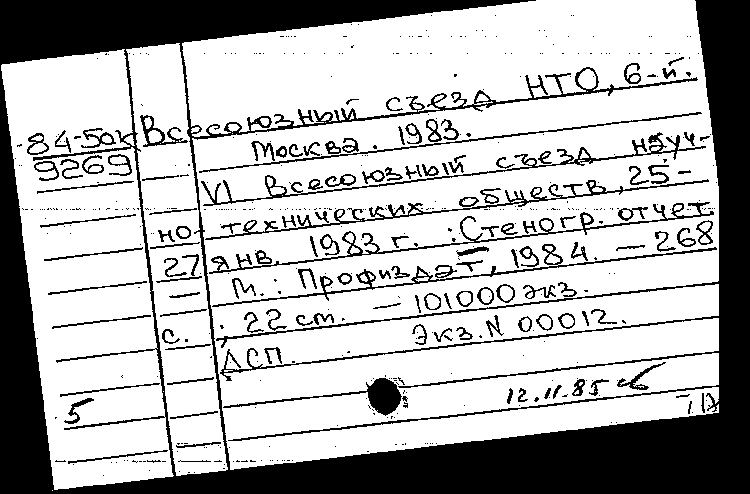 84-5ок Всесоюзный съезд НТО, 6-й.
9269 Москва. 1983.
VI Всесоюзный съезд науч-
но-технических обществ, 25-
27 янв. 1983 г. : Стеногр. отчет
— М.: Профиздат, 1984. — 268
с. ; 22 см. — 101000 экз.
ДСП. Экз. N 00012.
5 12.11.85